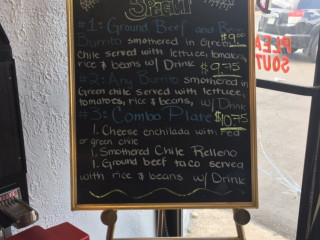 #1: Ground Beef and Bean
Burrito smothered in Green $9.00
Chile served with lettuce, tomatoes,
rice & beans w/ Drink $9.75
#2: Any Burrito smothered in
Green chile served with lettuce,
tomatoes, rice & beans, w/ Drink
#3: Combo Plate $10.75
1. Cheese enchilada with red
or green chile
1. Smothered Chile Relleno
1. Ground beef taco served
with rice & beans w/ Drink